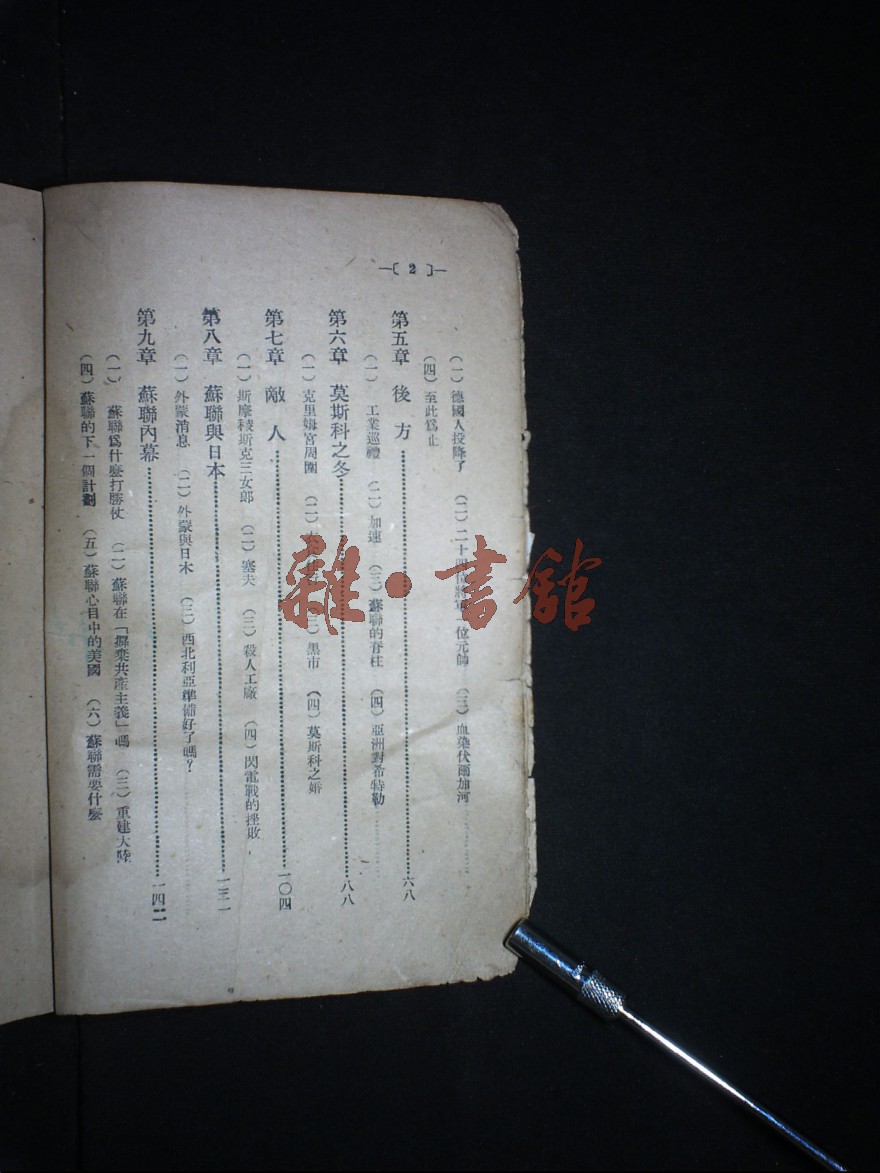 —〔 2 〕—
（一）德國人投降了　（二）二十四位將軍一位元帥　（三）血染伏爾加河
（四）至此爲止
第五章　後　方……六八
（一）　工業巡禮　（二）加速　（三）蘇聯的脊柱　（四）亞洲對希特勒
第六章　莫斯科之冬……八八
（一）克里姆宮周圍　（二）　（三）黑市　（四）莫斯科之婚
第七章　敵　人……一〇四
（一）斯摩稜斯克三女郎　（二）塞夫　（三）殺人工廠　（四）閃電戰的挫敗
第八章　蘇聯與日本……一三一
（一）外蒙消息　（二）外蒙與日本　（三）西北利亞準備好了嗎？
第九章　蘇聯內幕……一四二
（一）　蘇聯爲什麼打勝仗　（二）蘇聯在「摒棄共產主義」嗎　（三）重建大陸
（四）蘇聯的下一個計劃　（五）蘇聯心目中的美國　（六）蘇聯需要什麼
雜·書舘